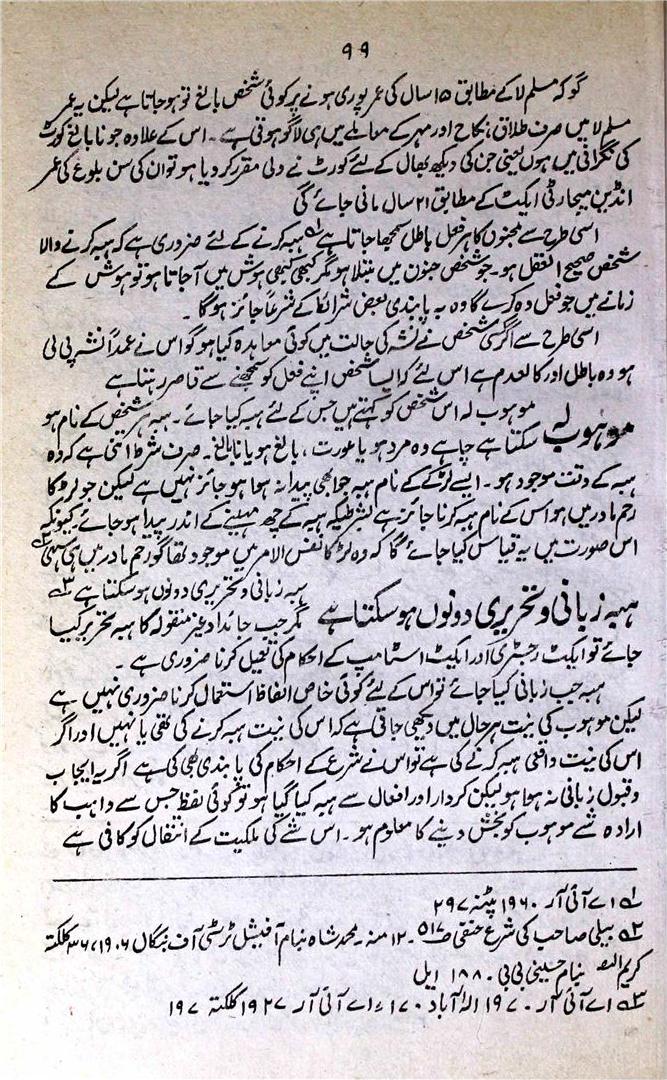 ۹۹
گو کہ مسلم لا کے مطابق ۱۵ سال کی عمر پوری ہونے پر کوئی شخص بالغ تو ہو جاتا ہے لیکن یہ عمر
مسلم لا میں صرف طلاق، نکاح اور مہر کے معاملے میں ہی لاگو ہوتی ہے۔ اس کے علاوہ جو نابالغ کورٹ
کی نگرانی میں ہوں یعنی جن کی دیکھ بھال کے لئے کورٹ نے ولی مقرر کر دیا ہو تو ان کی سن بلوغ کی عمر
انڈین میجارٹی ایکٹ کے مطابق ۲۱ سال مانی جائے گی
اسی طرح سے مجنوں کا ہر فعل باطل سمجھا جاتا ہے ۱؎ ہبہ کرنے کے لئے ضروری ہے کہ ہبہ کرنے والا
شخص صحیح العقل ہو۔ جو شخص جنون میں مبتلا ہو مگر کبھی کبھی ہوش میں آ جاتا ہو تو ہوش کے
زمانے میں جو فعل وہ کرے گا وہ بہ پابندی بعض شرائط کے شرعاً جائز ہو گا۔
اسی طرح سے اگر کسی شخص نے نشہ کی حالت میں کوئی معاہدہ کیا ہو گو اس نے عمداً نشہ پی لی
ہو وہ باطل اور کالعدم ہے اس لئے کہ ایسا شخص اپنے فعل کو سمجھنے سے قاصر رہتا ہے
موہوب لہ موہوب لہ اس شخص کو کہتے ہیں جس کے لئے ہبہ کیا جائے۔ ہبہ ہر شخص کے نام ہو
سکتا ہے چاہے وہ مرد ہو یا عورت، بالغ ہو یا نابالغ۔ صرف شرط اتنی ہے کہ وہ
ہبہ کے وقت موجود ہو۔ ایسے لڑکے کے نام ہبہ جو ابھی پیدا نہ ہوا ہو جائز نہیں ہے لیکن جو لڑکا
رحم مادر میں ہو اس کے نام ہبہ کرنا جائز ہے بشرطیکہ ہبہ کے چھ مہینے کے اندر پیدا ہو جائے۔ کیونکہ
اس صورت میں یہ قیاس کیا جائے گا کہ وہ لڑکا نفس الامر میں موجود تھا گو رحم مادر میں ہی سہی ۲؎
ہبہ زبانی و تحریری دونوں ہو سکتا ہے ہبہ زبانی و تحریری دونوں ہو سکتا ہے ۳؎
مگر جب جائداد غیر منقولہ کا ہبہ تحریر کیا
جائے تو ایکٹ رجسٹری اور ایکٹ اسٹامپ کے احکام کی تعمیل کرنا ضروری ہے۔
ہبہ جب زبانی کیا جائے تو اس کے لئے کوئی خاص الفاظ استعمال کرنا ضروری نہیں ہے
لیکن موہوب کی نیت ہر حال میں دیکھی جاتی ہے کہ اس کی نیت ہبہ کرنے کی تھی یا نہیں اور اگر
اس کی نیت واقعی ہبہ کرنے کی ہے تو اس نے شرع کے احکام کی پابندی بھی کی ہے اگر یہ ایجاب
و قبول زبانی نہ ہوا ہو لیکن کردار اور افعال سے ہبہ کیا گیا ہو تو کوئی لفظ جس سے واہب کا
ارادہ شے موہوب کو بخش دینے کا معلوم ہو۔ اس شے کی ملکیت کے انتقال کو کافی ہے
۱؎ اے آئی آر ۱۹۶۰ پٹنہ ۲۹۷
۲؎ بیلی صاحب کی شرع حنفی ص ۵۱۷۔ ۱۲ منہ۔ محمد شاہ بنام آفیشل ٹرسٹی آف بنگال ۱۹۰۶، ۳۶ کلکتہ
کریم اللہ بنام حسینی بی بی۔ ۱۸۸ ایل
۳؎ اے آئی آر ۱۹۷۰ الہ آباد ۱۷۰، اے آئی آر ۱۹۲۷ کلکتہ ۱۹۷